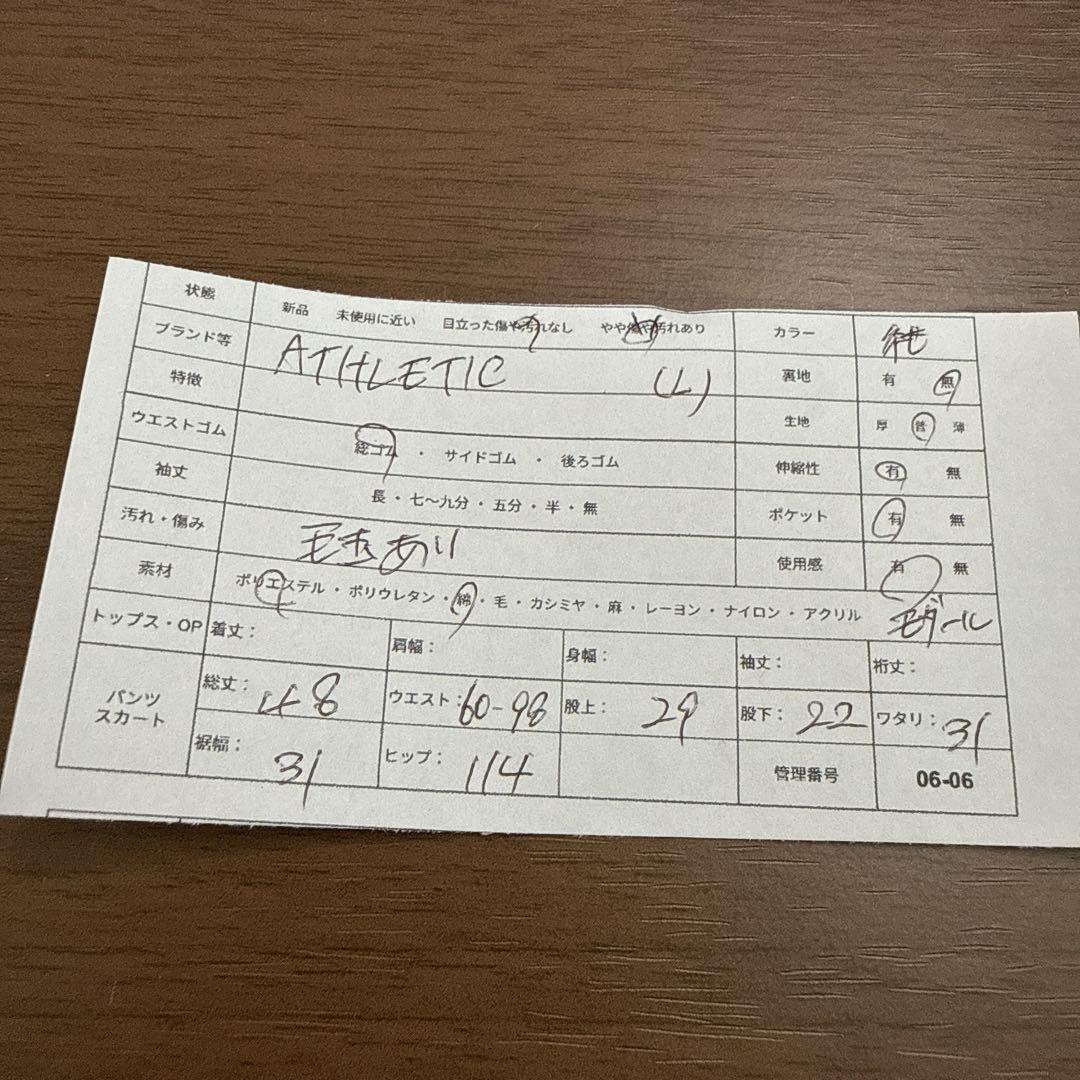 状態 新品 未使用に近い 目立った傷や汚れなし やや傷や汚れあり カラー
ブランド等 ATHLETIC (L) 裏地 有 無
特徴 生地 厚 普 薄
ウエストゴム 総ゴム ・ サイドゴム ・ 後ろゴム 伸縮性 有 無
袖丈 長・七〜九分・五分・半・無 ポケット 有 無
汚れ・傷み 毛玉あり 使用感 有 無
素材 ポリエステル・ポリウレタン・綿・毛・カシミヤ・麻・レーヨン・ナイロン・アクリル モダール
トップス・OP 着丈： 肩幅： 身幅： 袖丈： 裄丈：
パンツ スカート 総丈： 48 ウエスト：60-98 股上： 29 股下： 22 ワタリ： 31
裾幅： 31 ヒップ： 114 管理番号 06-06